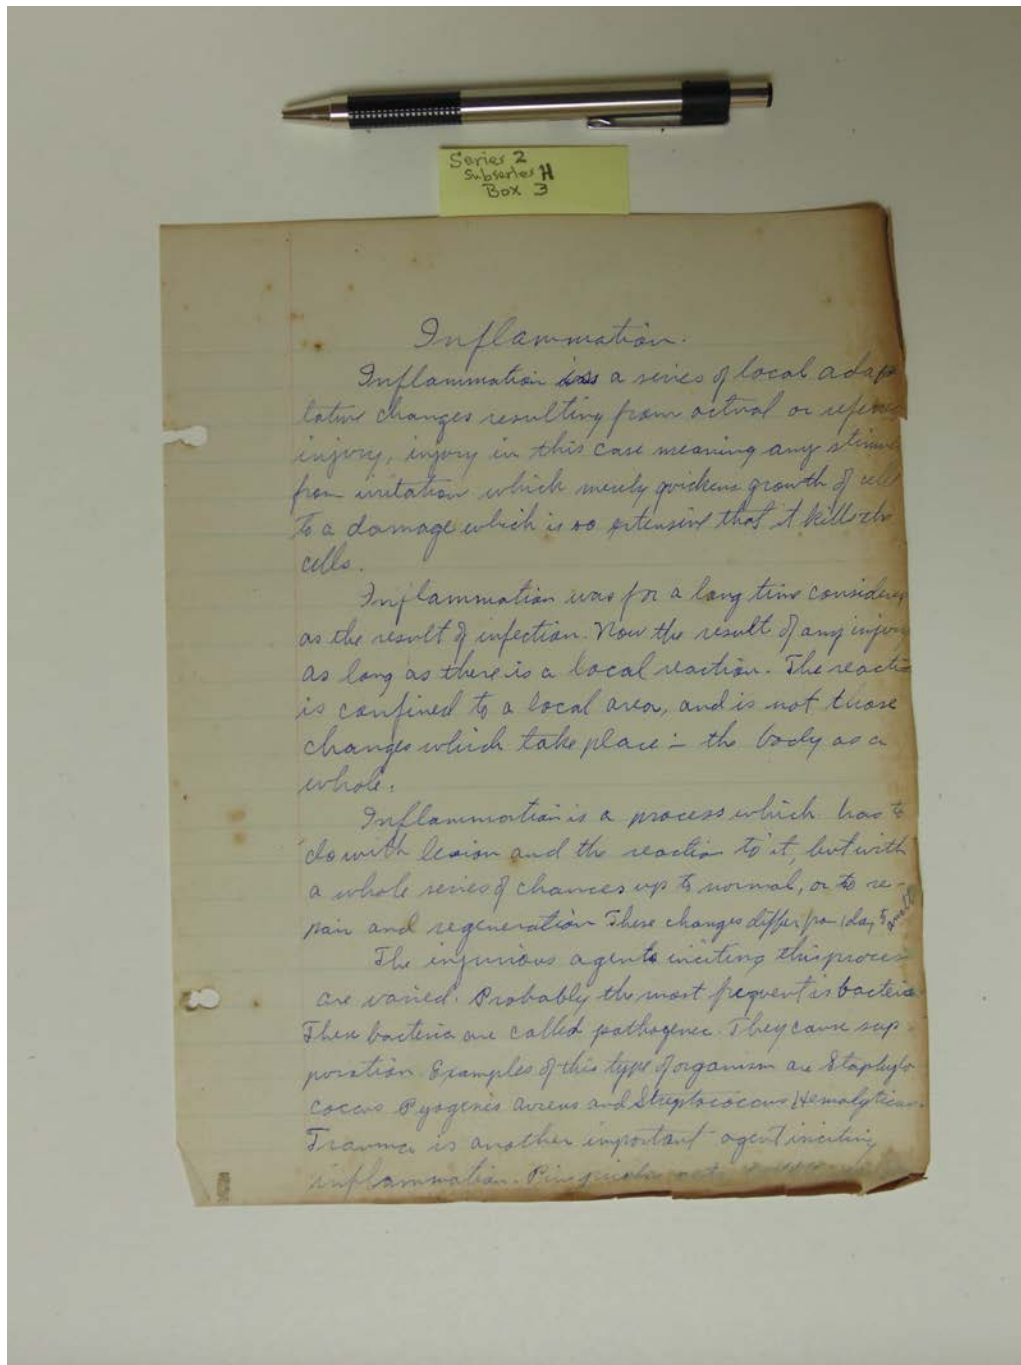 Series 2
Subseries H
Box 3
Inflammation.
Inflammation is a series of local adap
tative changes resulting from actual or
injury, injury in this case meaning any
from irritation which merely quickens growth of cell
to a damage which is so extensive that it kills the
cells.
Inflammation was for a long time considered
as the result of infection. Now the result of any injury
as long as there is a local reaction. The reactio
is confined to a local area, and is not those
changes which take place the body as a
whole.
Inflammation is a process which has to
do with lesion and the reaction to it, but with
a whole series of chances up to normal, or to re-
pair and regeneration These changes differ from day to
The injurious agents inciting this process
are varied. Probably the most frequent is bacteria
These bacteria are called pathogenic. They cause sup
poration Examples of this type of organism are Staphylo
coccus Pyogenes aureus and Streptococcus Hemolyticus.
Trauma is another important agent inciting
inflammation. Pin